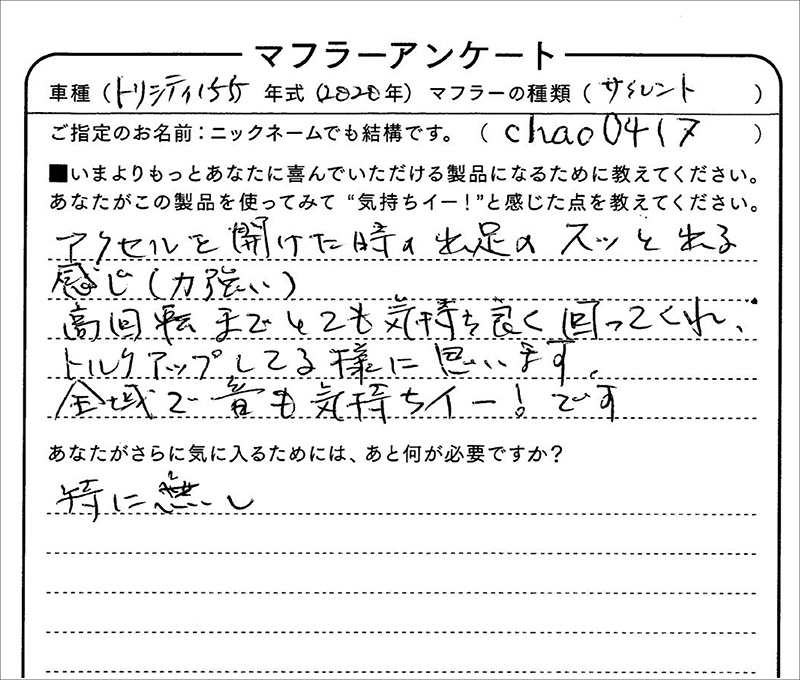 マフラーアンケート
車種（トリシティ155 年式（2020年）マフラーの種類（サイレント ）
ご指定のお名前：ニックネームでも結構です。（ chao0417 ）
■いまよりもっとあなたに喜んでいただける製品になるために教えてください。
あなたがこの製品を使ってみて“気持ちイー！”と感じた点を教えてください。
アクセルを開けた時の出足のスッと出る
感じ（力強い）
高回転までとても気持ち良く回ってくれ、
トルクアップしてる様に思います。
全域で音も気持ちイー！です
あなたがさらに気に入るためには、あと何が必要ですか？
特に無し